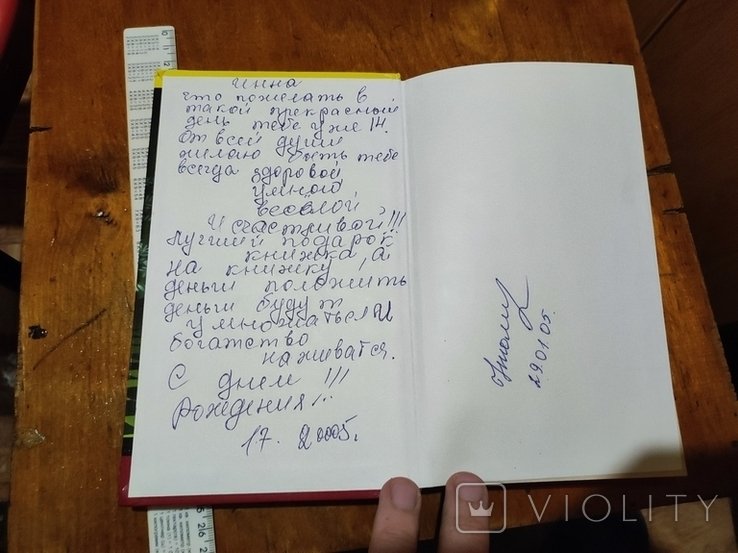 Инна
что пожелать в
такой прекрасный
день тебе уже 14.
От всей души
желаю быть тебе
всегда здоровой,
умной,
весёлой,
И счастливой!!!
Лучший подарок
книжка, а
на книжку
деньги положить
деньги будут
умножаться и
богатство
наживатся.
С днем !!!
Рождения!..
17. 2005г.
29.01.05.
VIOLITY